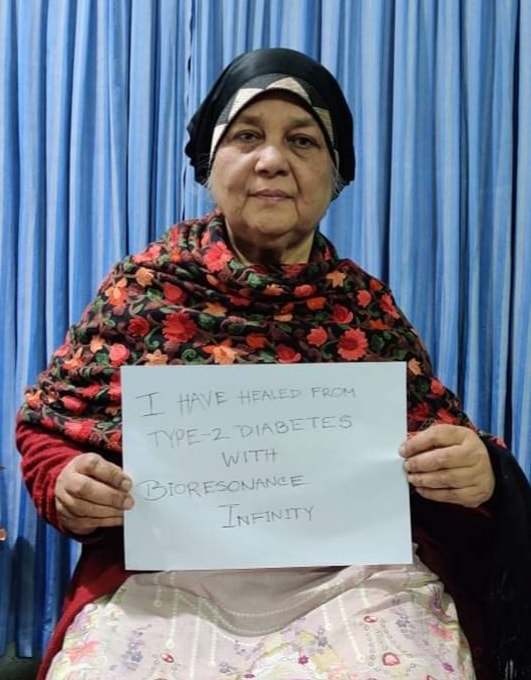 I HAVE HEALED FROM
TYPE-2 DIABETES
WITH
BIORESONANCE
INFINITY